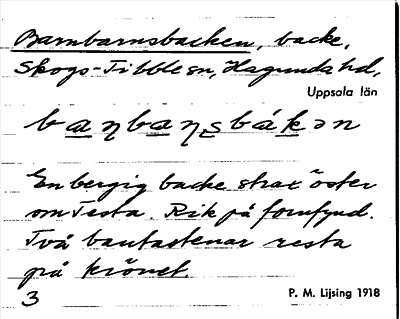 Barnbarnsbacken, backe,
Skogs-Tibble sn, Hagunda hd,
Uppsala län
baɳbaɳsbákən
En bergig backe strax öster
om Testa. Rik på fornfynd.
Två bautastenar resta
på krönet.
3
P. M. Lijsing 1918